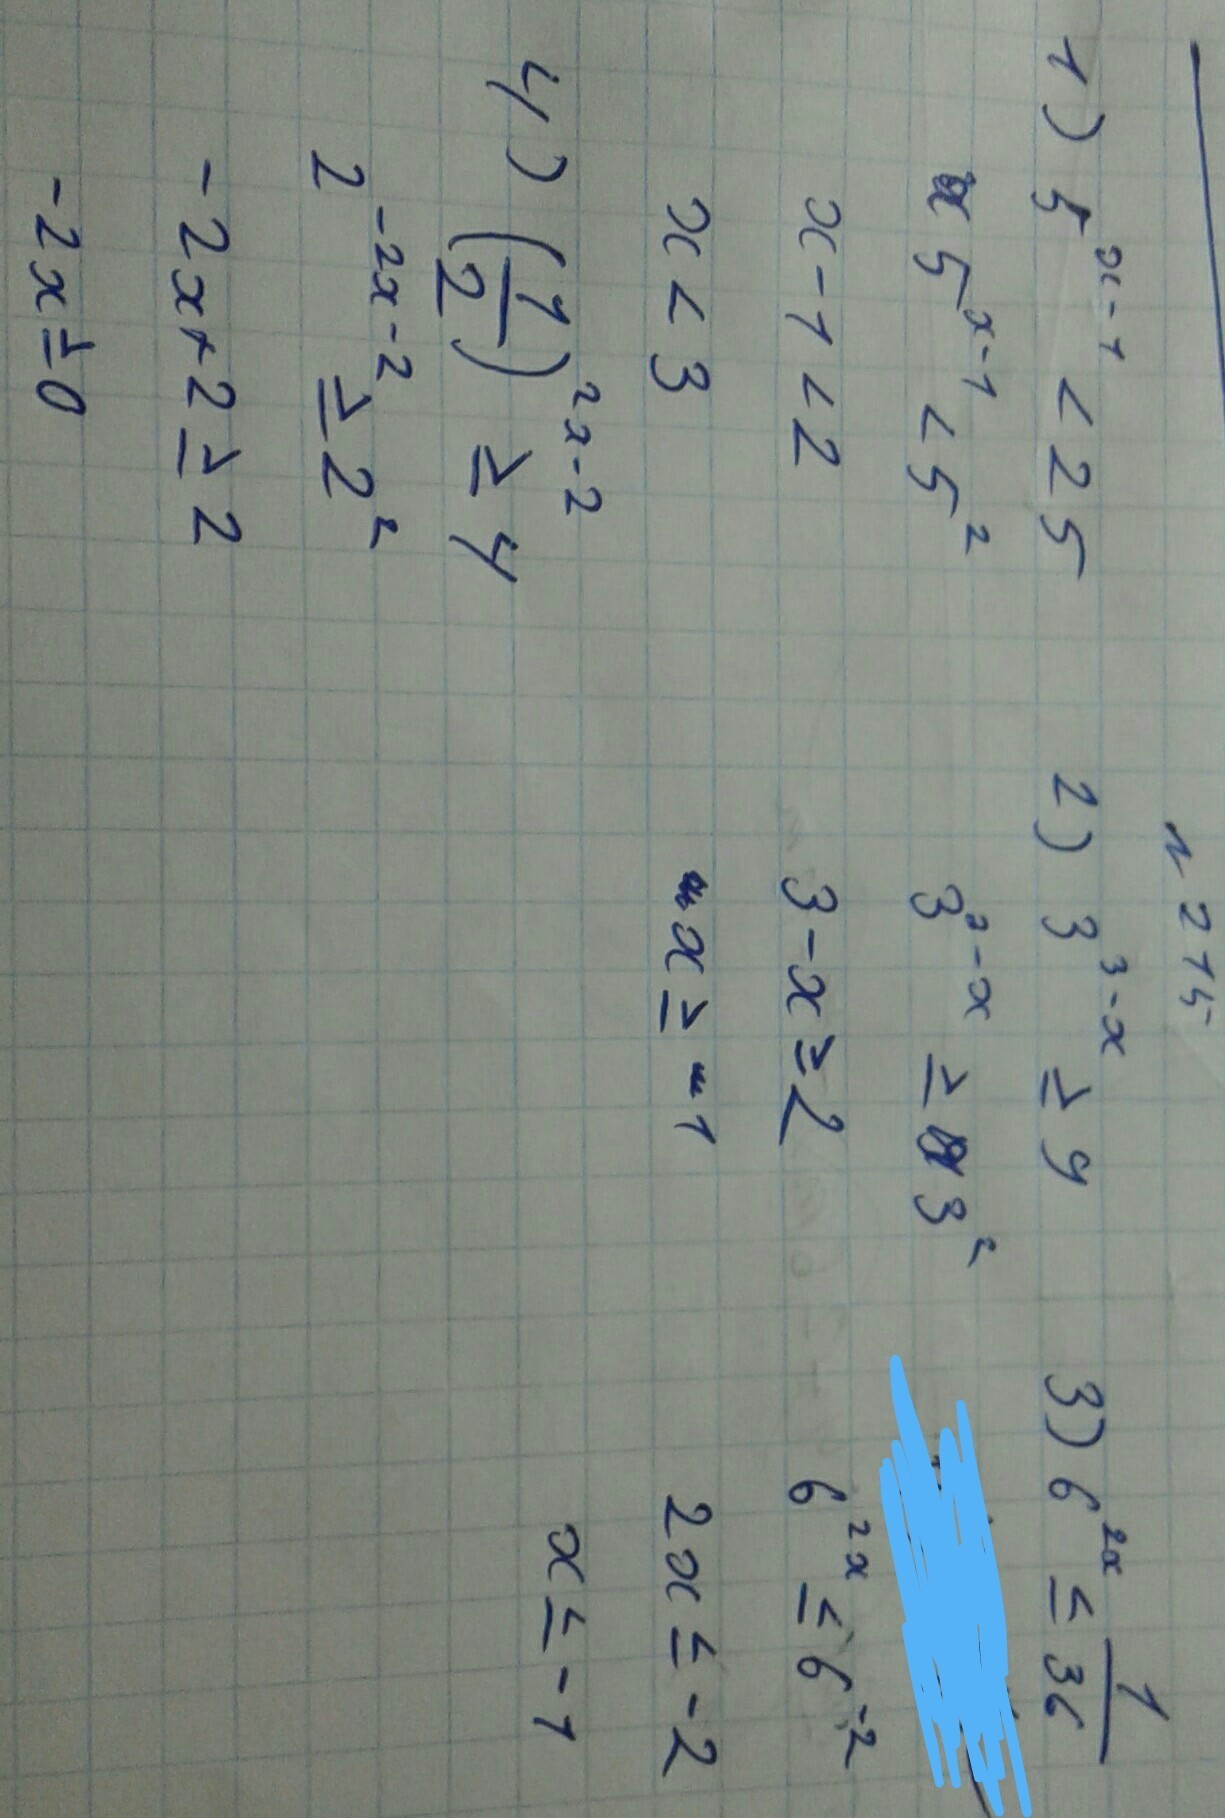 n 215
1) 5^{x-1} < 25
5^{x-1} < 5^2
x-1 < 2
x < 3
2) 3^{3-x} ≥ 9
3^{3-x} ≥ 3^2
3-x ≥ 2
x ≥ 1
3) 6^{2x} ≤ \frac{1}{36}
6^{2x} ≤ 6^{-2}
2x ≤ -2
x ≤ -1
4) (\frac{1}{2})^{2x-2} ≥ 4
2^{-2x-2} ≥ 2^2
-2x+2 ≥ 2
-2x ≥ 0